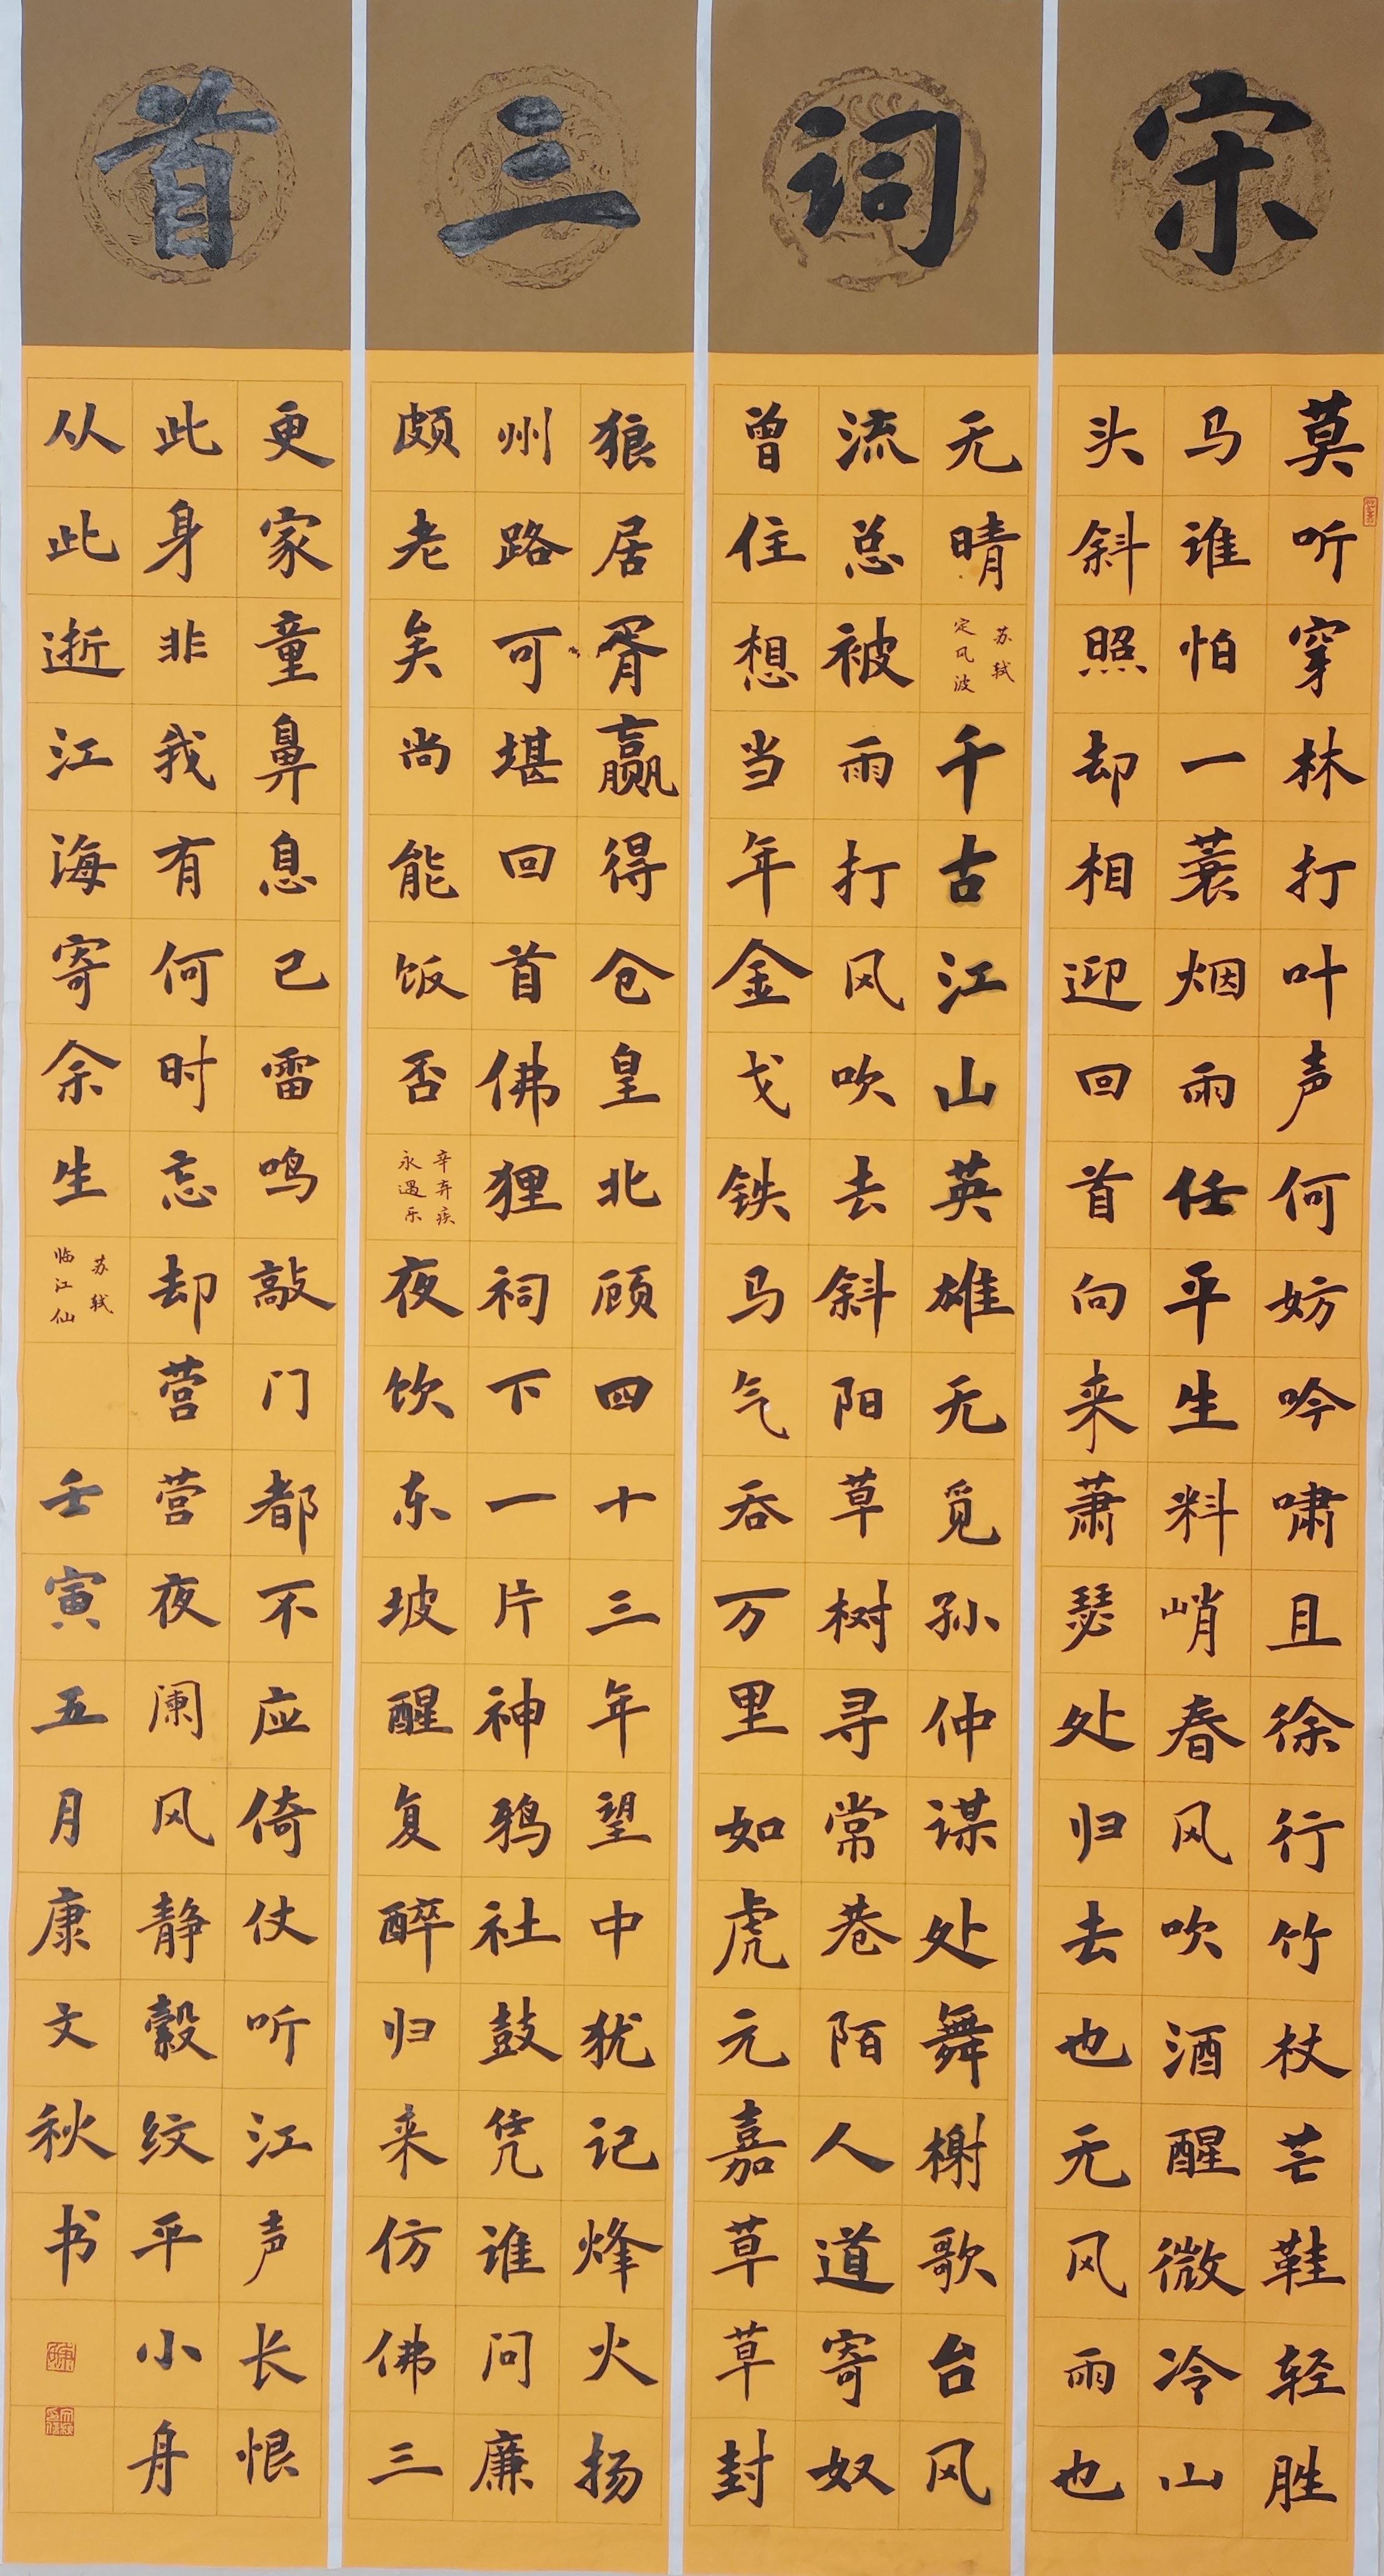 宋词三首
莫听穿林打叶声何妨吟啸且徐行竹杖芒鞋轻胜
马谁怕一蓑烟雨任平生料峭春风吹酒醒微冷山
头斜照却相迎回首向来萧瑟处归去也无风雨也
无晴 苏轼 定风波 千古江山英雄无觅孙仲谋处舞榭歌台风
流总被雨打风吹去斜阳草树寻常巷陌人道寄奴
曾住想当年金戈铁马气吞万里如虎元嘉草草封
狼居胥赢得仓皇北顾四十三年望中犹记烽火扬
州路可堪回首佛狸祠下一片神鸦社鼓凭谁问廉
颇老矣尚能饭否 辛弃疾 永遇乐 夜饮东坡醒复醉归来仿佛三
更家童鼻息已雷鸣敲门都不应倚仗听江声长恨
此身非我有何时忘却营营夜阑风静縠纹平小舟
从此逝江海寄余生 苏轼 临江仙 壬寅五月康文秋书